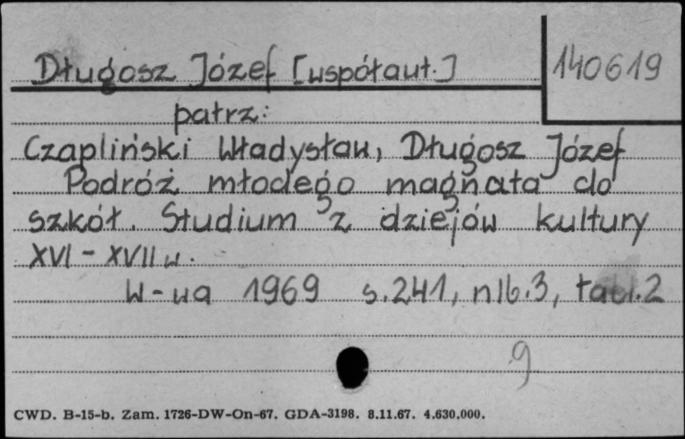 Długosz Józef [współaut.]
140619
patrz:
Czapliński Władysław, Długosz Józef
Podróż młodego magnata do
szkół. Studium z dziejów kultury
XVI - XVII w.
W-wa 1969 s. 241, nlb. 3, tabl. 2
9
CWD. B-15-b. Zam. 1726-DW-On-67. GDA-3198. 8.11.67. 4.630.000.